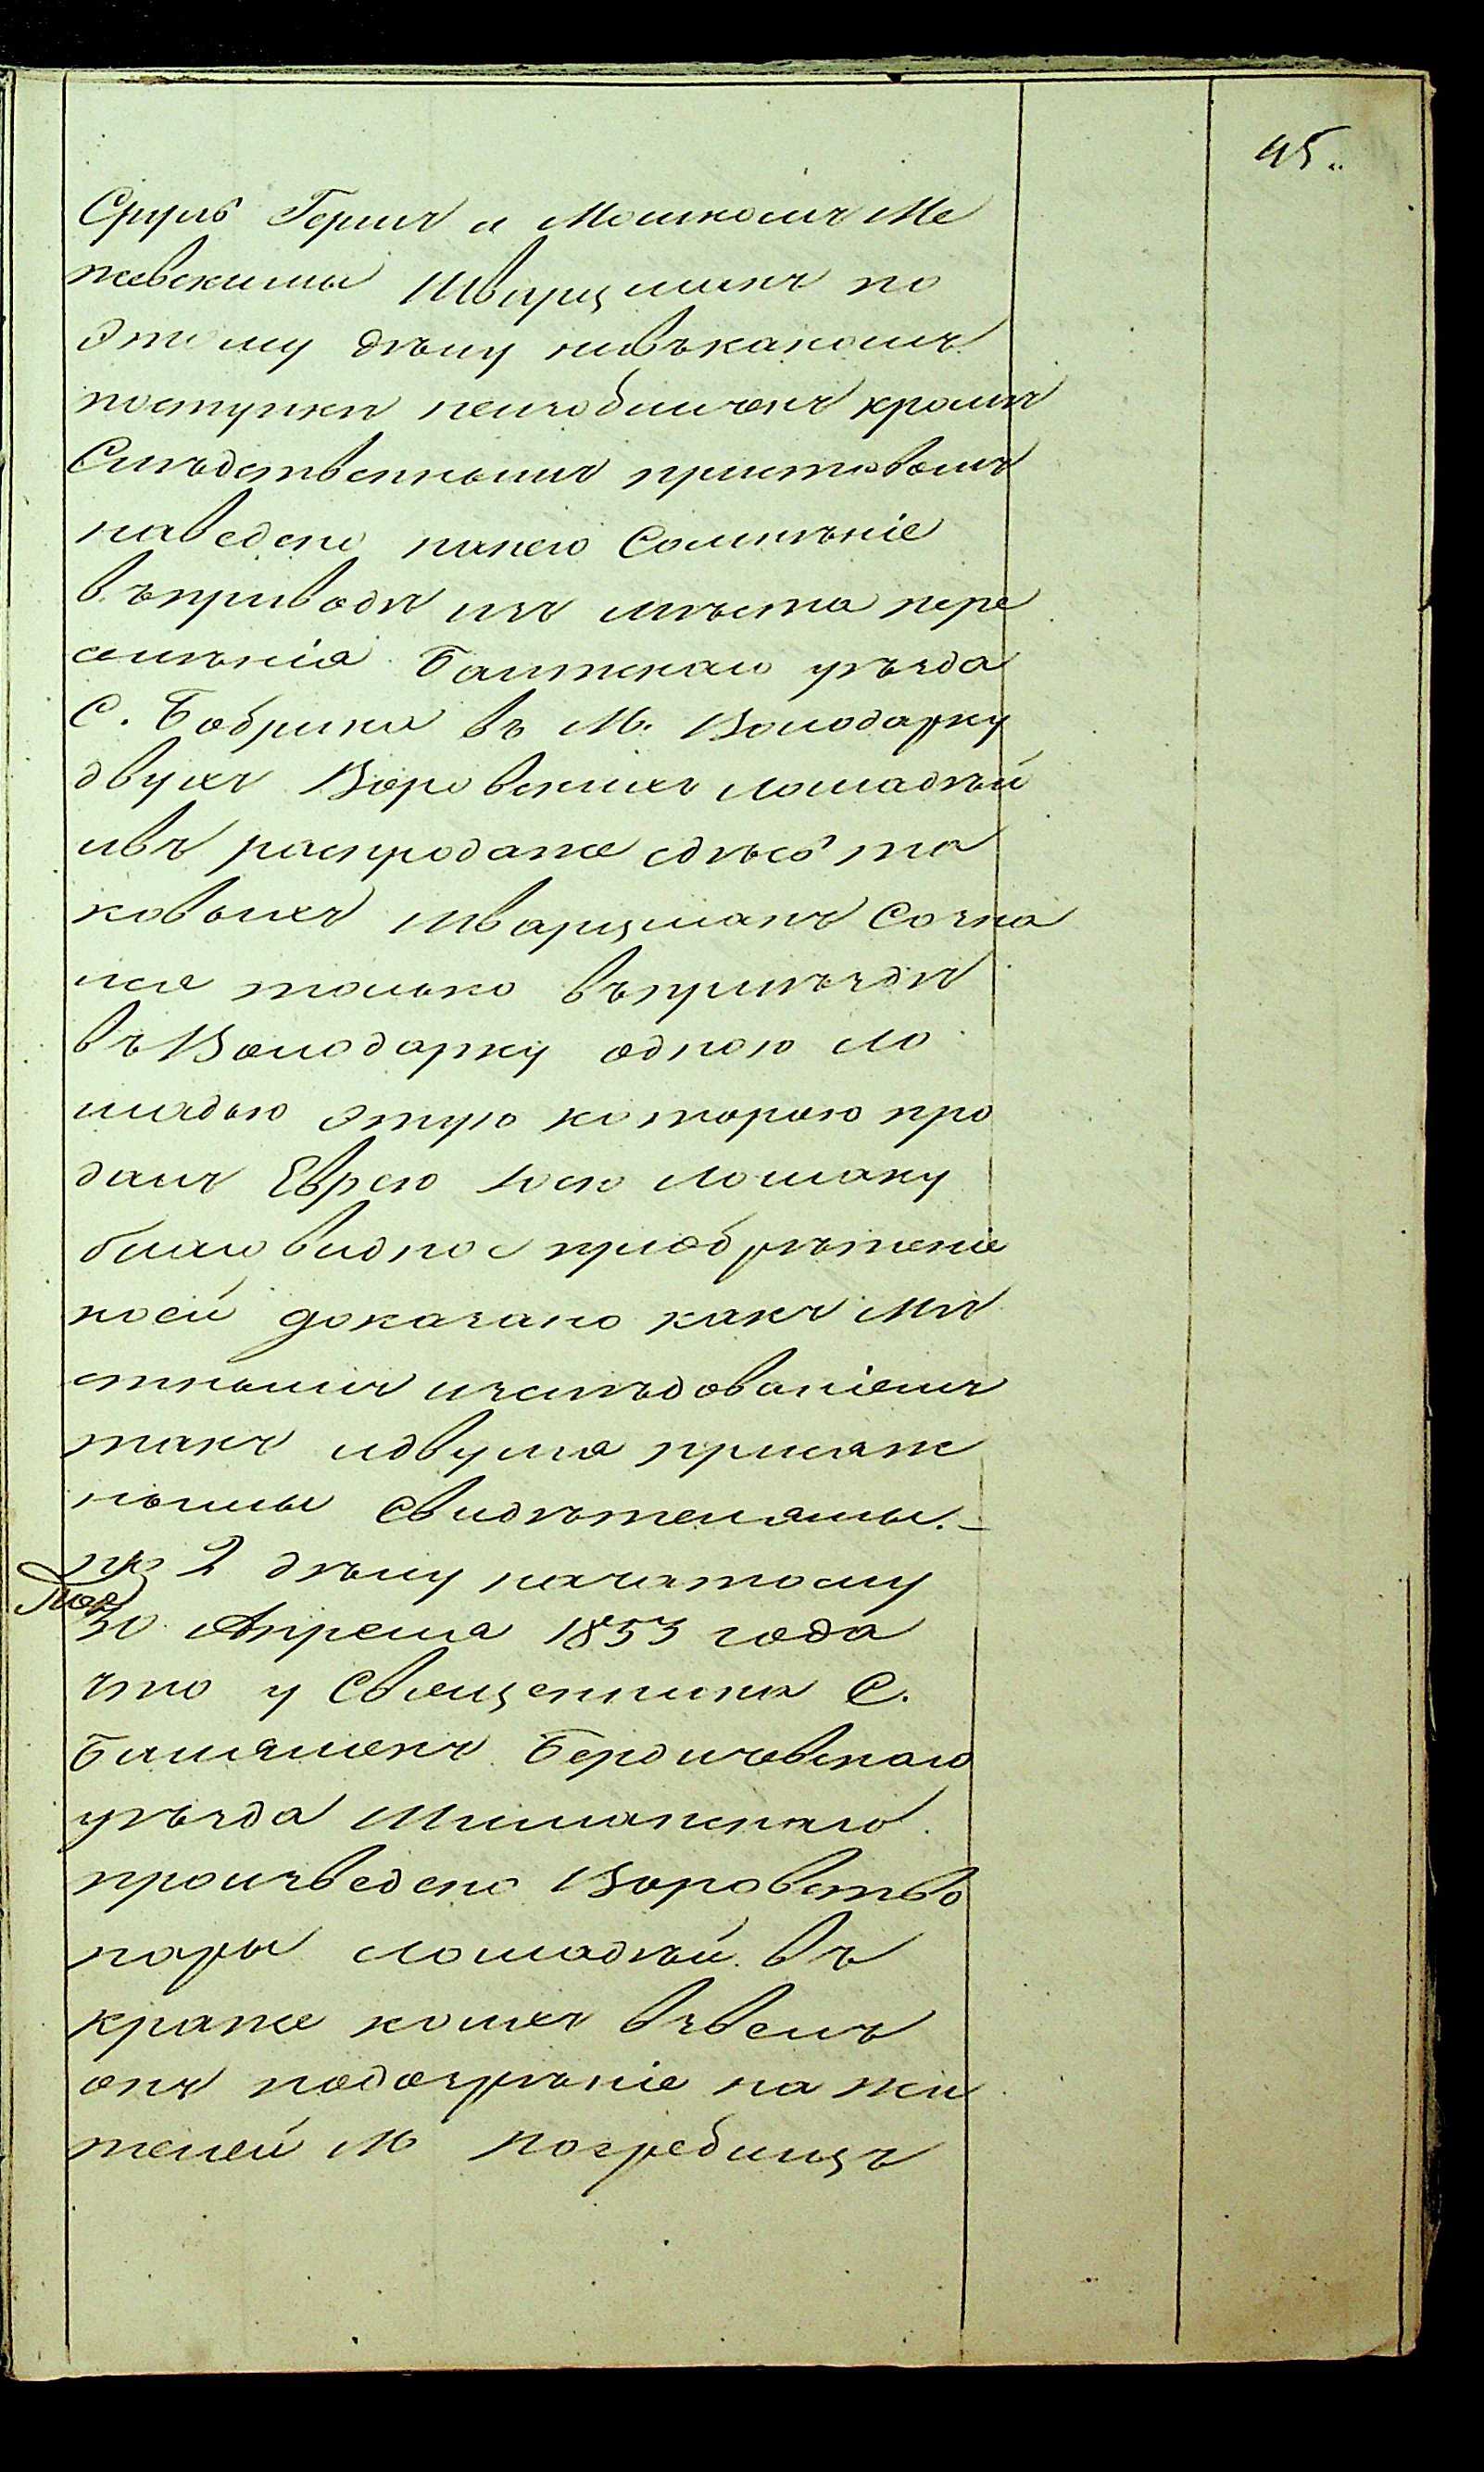 45.
Сруль Герш и Мошкомъ Ме
жевскимы Шварцманъ по
этому дѣлу нивъкакомъ
поступкѣ неизобличенъ кромѣ
Слѣдственнымъ приставомъ
наведено нанего Сомнѣніе
въприводѣ изъ мѣста пере
селѣнія Балтскаго уѣзда
С. Бобрика въ М. Володарку
двухъ Воровскихъ лошадѣй
ивъ распродаже сдѣсь та
ковыхъ Шварцманъ Созна
лся только въприѣздѣ
въ Володарку одною ло
шадью этую которою про
далъ Еврею Лошаку
благовидное приобрѣтеніе
коей доказано какъ Мѣ
стнымъ изслѣдованіемъ
такъ идвума присяж
нымы Свидѣтелямы.—
по 2 дѣлу начатому
30 Апреля 1853 года
что у Священника С.
Бердичевскаго
уѣзда
произведено Воровство
пары лошадѣй въ
краже коихъ възвелъ
онъ подозрѣніе на жи
телей М Погребищъ